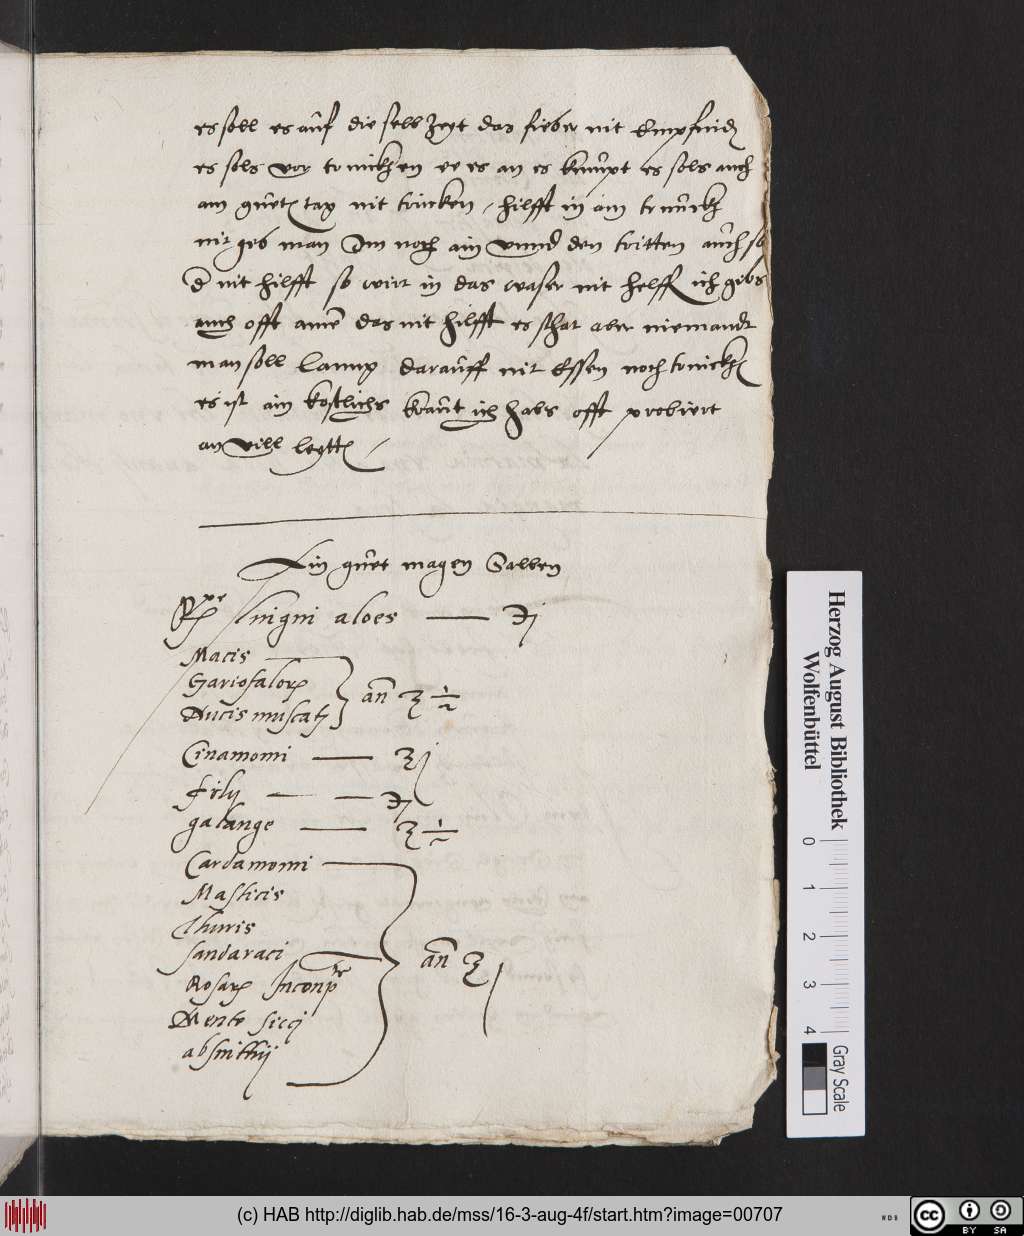 es soll es auf die selb Zeyt das fieber nit Empfind
es sols vor trincken ee es an es kumpt es sols auch
am guten tag nit trincken / hilfft in ain trunckh
nit geb man Im noch ain vnnd den tritten auch so
nit hilfft so wirt in das waser nit helffen ich gibs
auch offt das nit hilfft es schat aber niemandt
man soll lanng darauff nit Essen noch trinckhen
es ist ain kostlichs kraut ich habs offt probiert
an vill leytten /
Ein guet magen Salben
Rpe Ligni aloes — ℈j
Macis
Gariofalor
Nucis muscat
an ʒ ½
Cinamomi — ʒj
— ℈j
galange — ʒ ½
Cardamomi
Masticis
Thuris
sandaraci
Rosar
Mente sicci
absinthij
an ʒj
Herzog August Bibliothek
Wolfenbüttel
0 1 2 3 4
Gray Scale
(c) HAB http://diglib.hab.de/mss/16-3-aug-4f/start.htm?image=00707
WDB
cc
BY SA